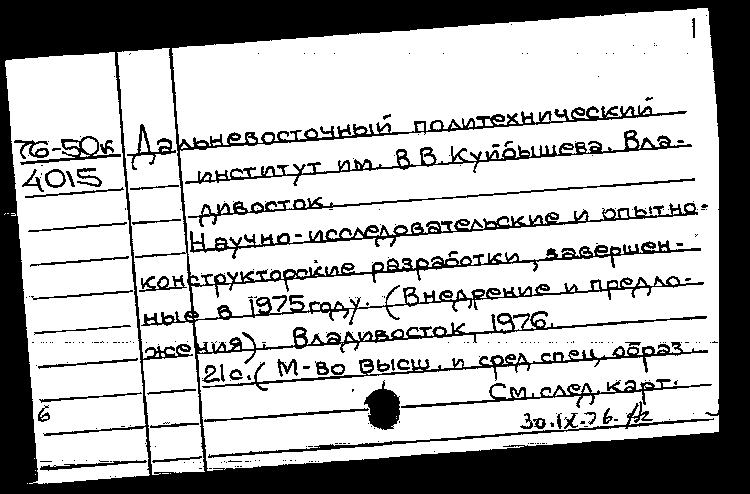 1
76-50к Дальневосточный политехнический
4015 институт им. В.В. Куйбышева. Вла-
дивосток.
Научно-исследовательские и опытно-
конструкторские разработки, завершен-
ные в 1975 году. (Внедрение и предло-
жения). Владивосток, 1976.
21с. (М-во высш. и сред. спец. образ.
См. след. карт.
6
30.IX.76.